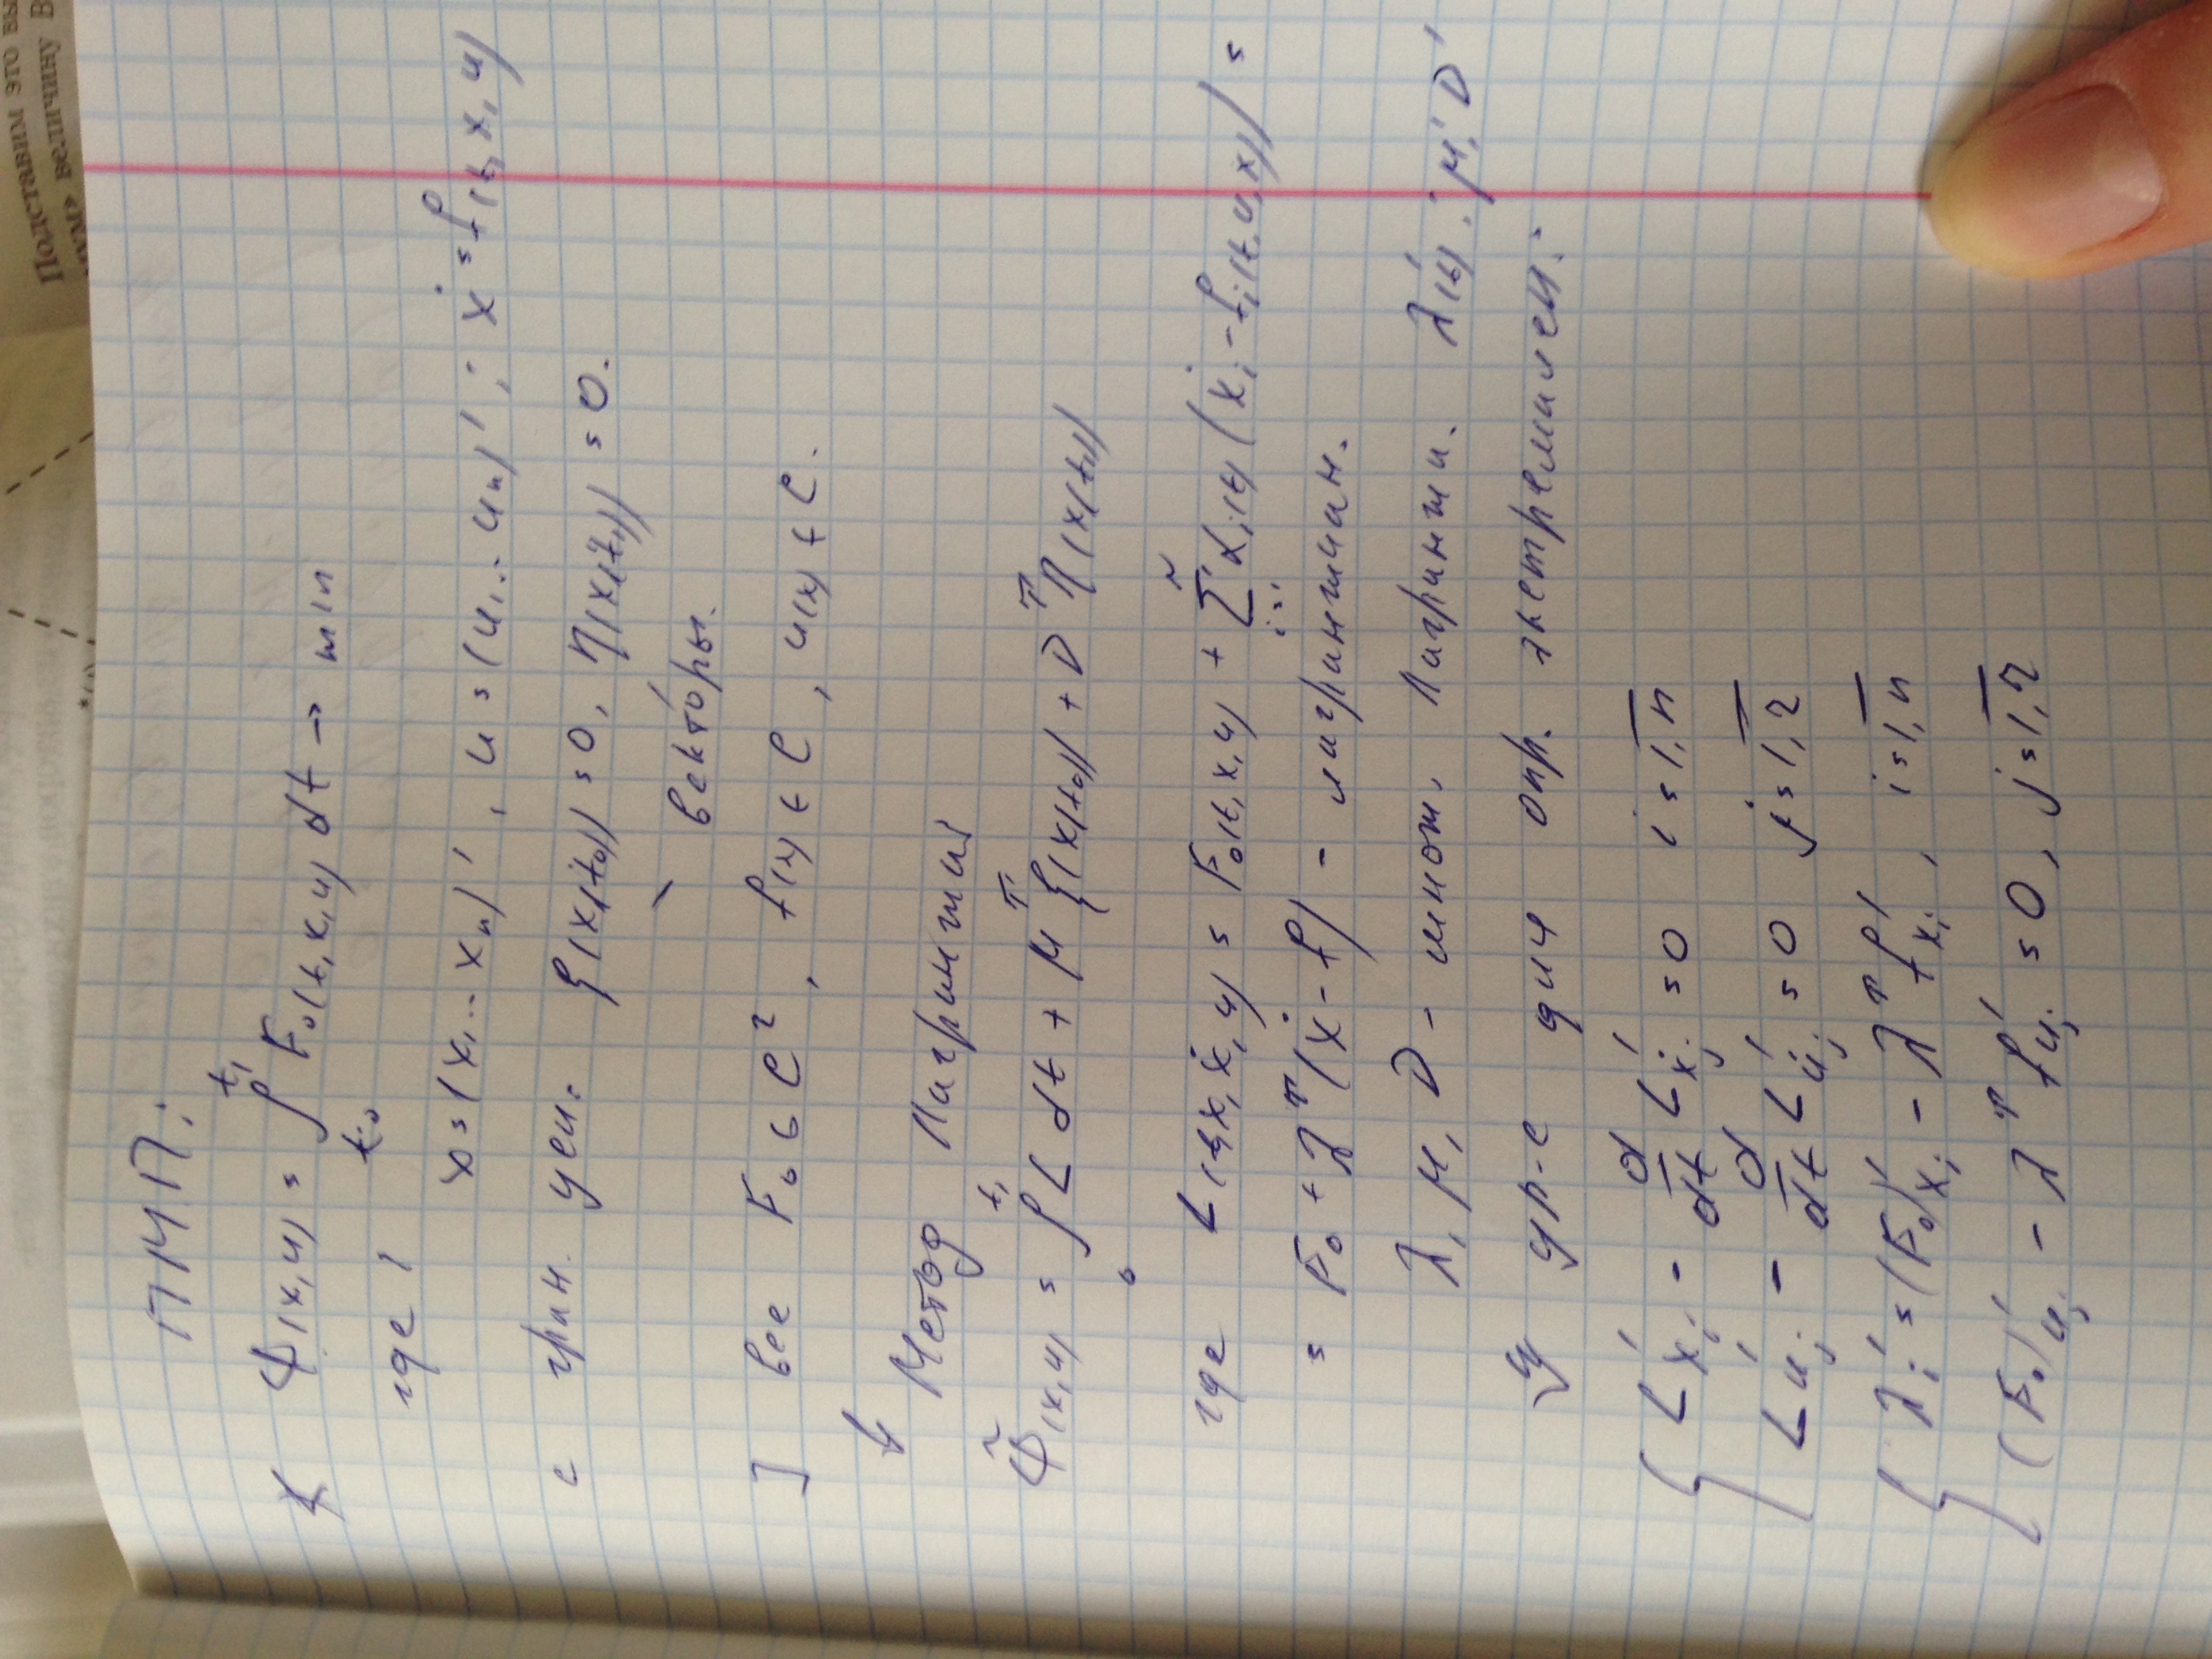 ПМП:
Ф(x,u) = ∫ₜ₀^t₁ F₀(t,x,u) dt → min
где: x = (x₁...xₙ)', u = (u₁...uᵣ)'; ẋ = f(t,x,u)
с гран. усл. ξ(x(t₀)) = 0, η(x(t₁)) = 0.
векторы.
] все F₀ ∈ C², f(x) ∈ C, u(x) ∈ C.
↓ Метод Лагранжа
Ф̃(x,u) = ∫₀^t₁ L dt + μᵀ ξ(x(t₀)) + νᵀ η(x(t₁))
где L(t,x,ẋ,u) = F₀(t,x,u) + Σᵢ₌₁ⁿ λᵢ(t) (ẋᵢ - fᵢ(t,u,x)) =
= F₀ + λᵀ(ẋ - f) - лагранжиан.
λ, μ, ν - множ. Лагранжа. λ(t)'; μ' ν'
ур-е для опр. экстремалей:
L'xᵢ - d/dt L'ẋᵢ = 0 i = 1,n
L'uⱼ - d/dt L'u̇ⱼ = 0 j = 1,r
λᵢ' = (F₀)'xᵢ - λᵀ f'xᵢ, i = 1,n
(F₀)'uⱼ - λᵀ f'uⱼ = 0, j = 1,r
Подставим это
величину